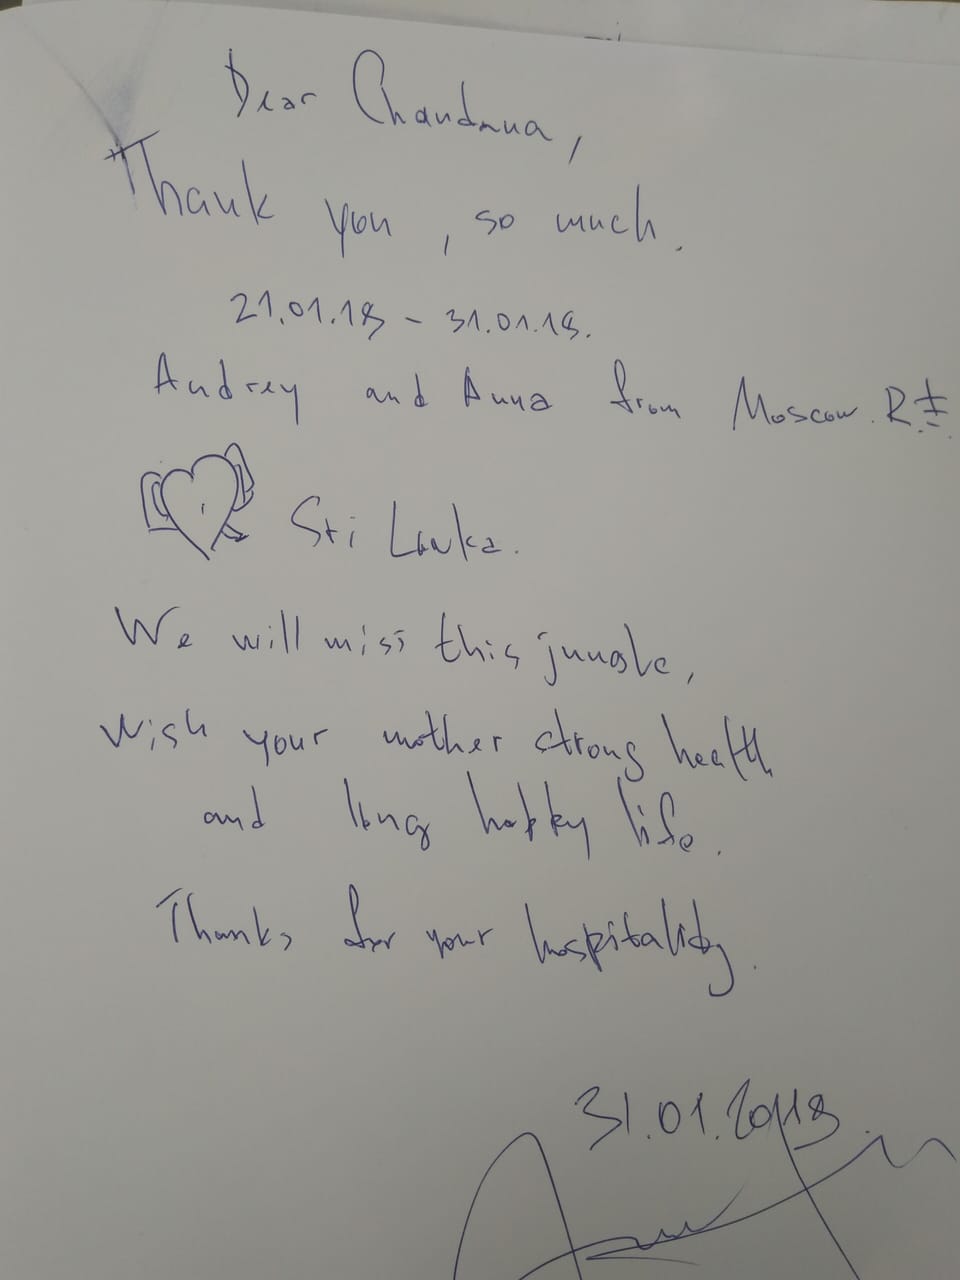 Dear Chandana,
Thank you, so much.
21.01.18 - 31.01.18.
Andrey and Anna from Moscow. RF.
Sri Lanka.
We will miss this jungle,
Wish your mother strong health
and long happy life.
Thanks for your hospitality.
31.01.2018.